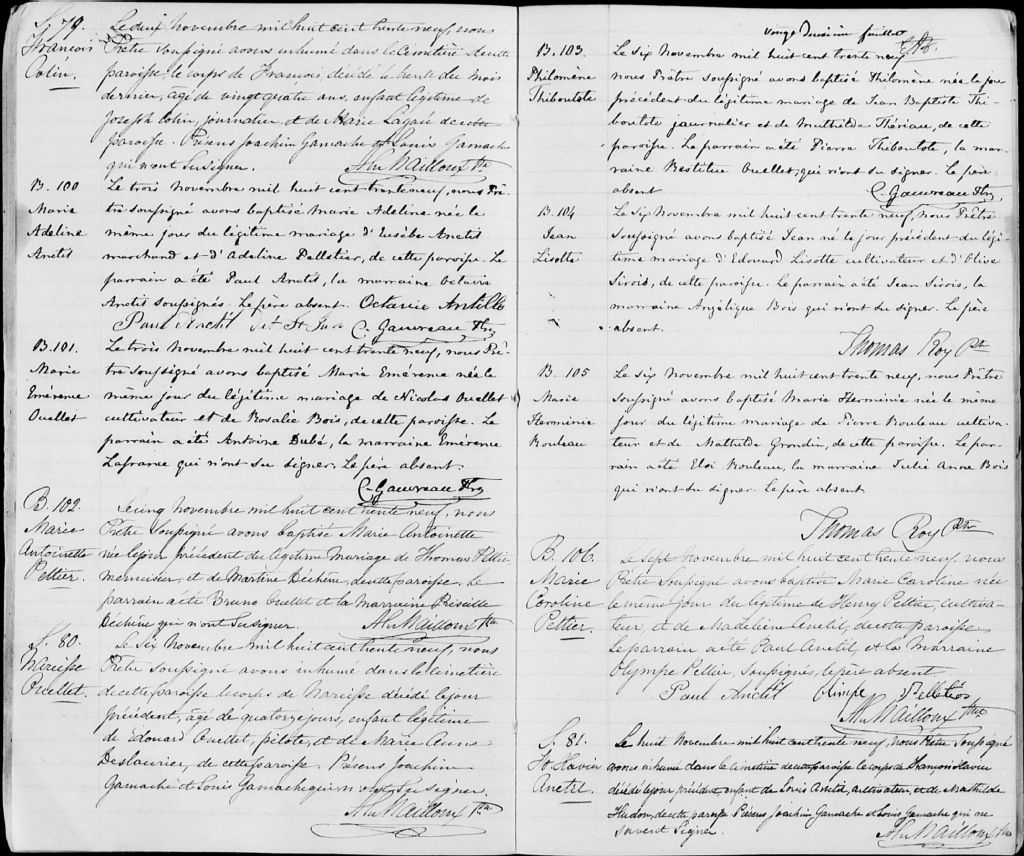 S. 79.
François
Colin.
Le deux novembre mil huit cent trente neuf, nous
Prêtre Soussigné avons inhumé dans le Cimetière de cette
paroisse le corps de François décédé le trente du mois
dernier, agé de vingt quatre ans, enfant légitime de
Joseph Colin, journalier, et de Marie Lagacé de cette
paroisse. Présens Joachim Gamache et Louis Gamache
qui n'ont Su signer. Al. Mailloux Ptre
B. 100
Marie
Adeline
Anctil
Le trois Novembre mil huit cent trente neuf, nous Prê-
tre soussigné avons baptisé Marie Adeline née le
même jour du légitime mariage d'Eusèbe Anctil
marchand et d'Adeline Pelletier, de cette paroisse. Le
parrain a été Paul Anctil, la marraine Octavie
Anctil soussignés. Le père absent. Octavie Antille
Paul Anctil C. Gauvreau Ptre
B. 101.
Marie
Emérence
Ouellet
Le trois Novembre mil huit cent trente neuf, nous Prê-
tre soussigné avons baptisé Marie Emérence née le
même jour du légitime mariage de Nicolas Ouellet
cultivateur et de Rosalie Bois, de cette paroisse. Le
parrain a été Antoine Dubé, la marraine Emérence
Lafrance qui n'ont su signer. Le père absent.
C. Gauvreau Ptre
B. 102.
Marie
Antoinette
Peltier.
Le cinq novembre mil huit cent trente neuf, nous
Prêtre Soussigné avons baptisé Marie Antoinette
née le jour précédent du légitime mariage de Thomas Peltier
menuisier, et de Martine Déchène, de cette paroisse. Le
parrain a été Bruno Ouellet et la Marraine Priscille
Déchène qui n'ont Su signer. Al. Mailloux Ptre
S. 80.
Narcisse
Ouellet.
Le Six Novembre mil huit cent trente neuf, nous
Prêtre Soussigné avons inhumé dans le cimetière
de cette paroisse le corps de Narcisse décédé le jour
précédent, agé de quatorze jours, enfant légitime
de Edouard Ouellet, pilote, et de Marie Anne
Deslaurier, de cette paroisse. Présens Joachim
Gamache et Louis Gamache qui n'ont Su signer.
Al. Mailloux Ptre
vingt deuxième feuillet
B. 103.
Philomène
Thiboutote
Le six Novembre mil huit cent trente neuf
nous Prêtre soussigné avons baptisé Philomène née le jour
précédent du légitime mariage de Jean Baptiste Thi-
boutote journalier et de Mathilde Thériau, de cette
paroisse. Le parrain a été Pierre Thiboutote, la mar-
raine Restitue Ouellet, qui n'ont su signer. Le père
absent C. Gauvreau Ptre
B. 104
Jean
Lisotte
Le six Novembre mil huit cent trente neuf, nous Prêtre
soussigné avons baptisé Jean né le jour précédent du légi-
time mariage d'Edouard Lisotte cultivateur et d'Olive
Sirois, de cette paroisse. Le parrain a été Jean Sirois, la
marraine Angélique Bois qui n'ont su signer. Le père
absent.
Thomas Roy Ptre
B. 105
Marie
Herminie
Rouleau
Le six Novembre mil huit cent trente neuf, nous Prêtre
soussigné avons baptisé Marie Herminie née le même
jour du légitime mariage de Pierre Rouleau cultiva-
teur et de Mathilde Grondin, de cette paroisse. Le par-
rain a été Eloi Rouleau, la marraine Julie Anne Bois
qui n'ont su signer. Le père absent.
Thomas Roy Ptre
B. 106.
Marie
Caroline
Peltier.
Le Sept Novembre mil huit cent trente neuf, nous
Prêtre Soussigné avons baptisé Marie Caroline née
le même jour du légitime de Henry Peltier, cultiva-
teur, et de Madeleine Anctil, de cette paroisse
Le parrain a été Paul Anctil, et la Marraine
Olympe Peltier, Soussignés, le père absent.
Paul Anctil Olimpe Pelletier
Al. Mailloux Ptre
S. 81.
Fs Xavier
Anctil.
Le huit Novembre mil huit cent trente neuf, nous Prêtre Soussigné
avons inhumé dans le cimetière de cette paroisse le corps de François Xavier
décédé le jour précédent, enfant de Louis Anctil, cultivateur, et de Mathilde
Hudon, de cette paroisse Présens Joachim Gamache et Louis Gamache qui ne
savent Signer. Al. Mailloux Ptre